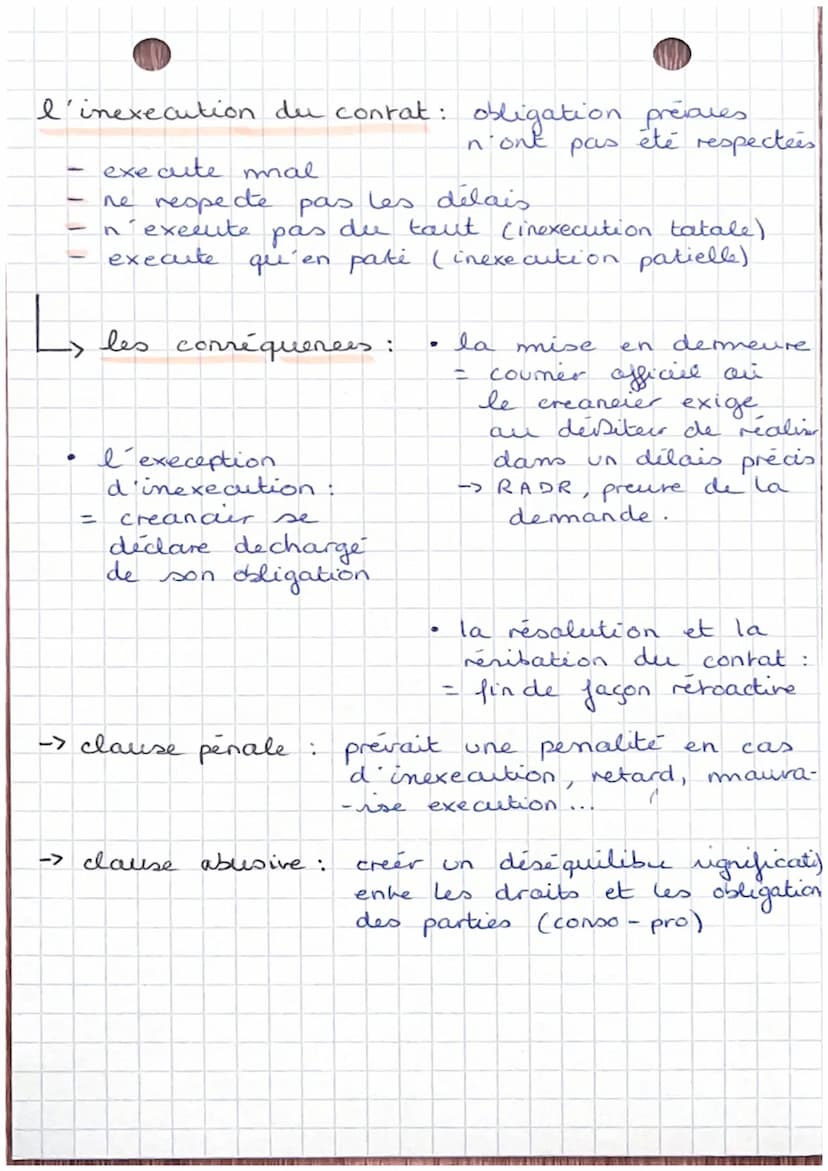 l'inexecution du contrat : obligation prévues
n'ont pas été respectées
- execute mal
- ne respecte pas les délais
- n'execute pas du tout (inexecution totale)
- execute qu'en partie (inexecution partielle)
↳ les conséquences :
• la mise en demeure
= courrier officiel où
le creancier exige
au débiteur de réaliser
dans un délais précis
-> RADR, preuve de la
demande.
• l'exeception
d'inexecution :
= creancier se
déclare dechargé
de son obligation
• la résolution et la
résiliation du contrat :
= fin de façon rétroactive
-> clause pénale : prévoit une penalité en cas
d'inexecution, retard, mauva-
-ise execution ...
-> clause abusive : creér un déséquilibre significatif
entre les droits et les obligation
des parties (conso - pro)